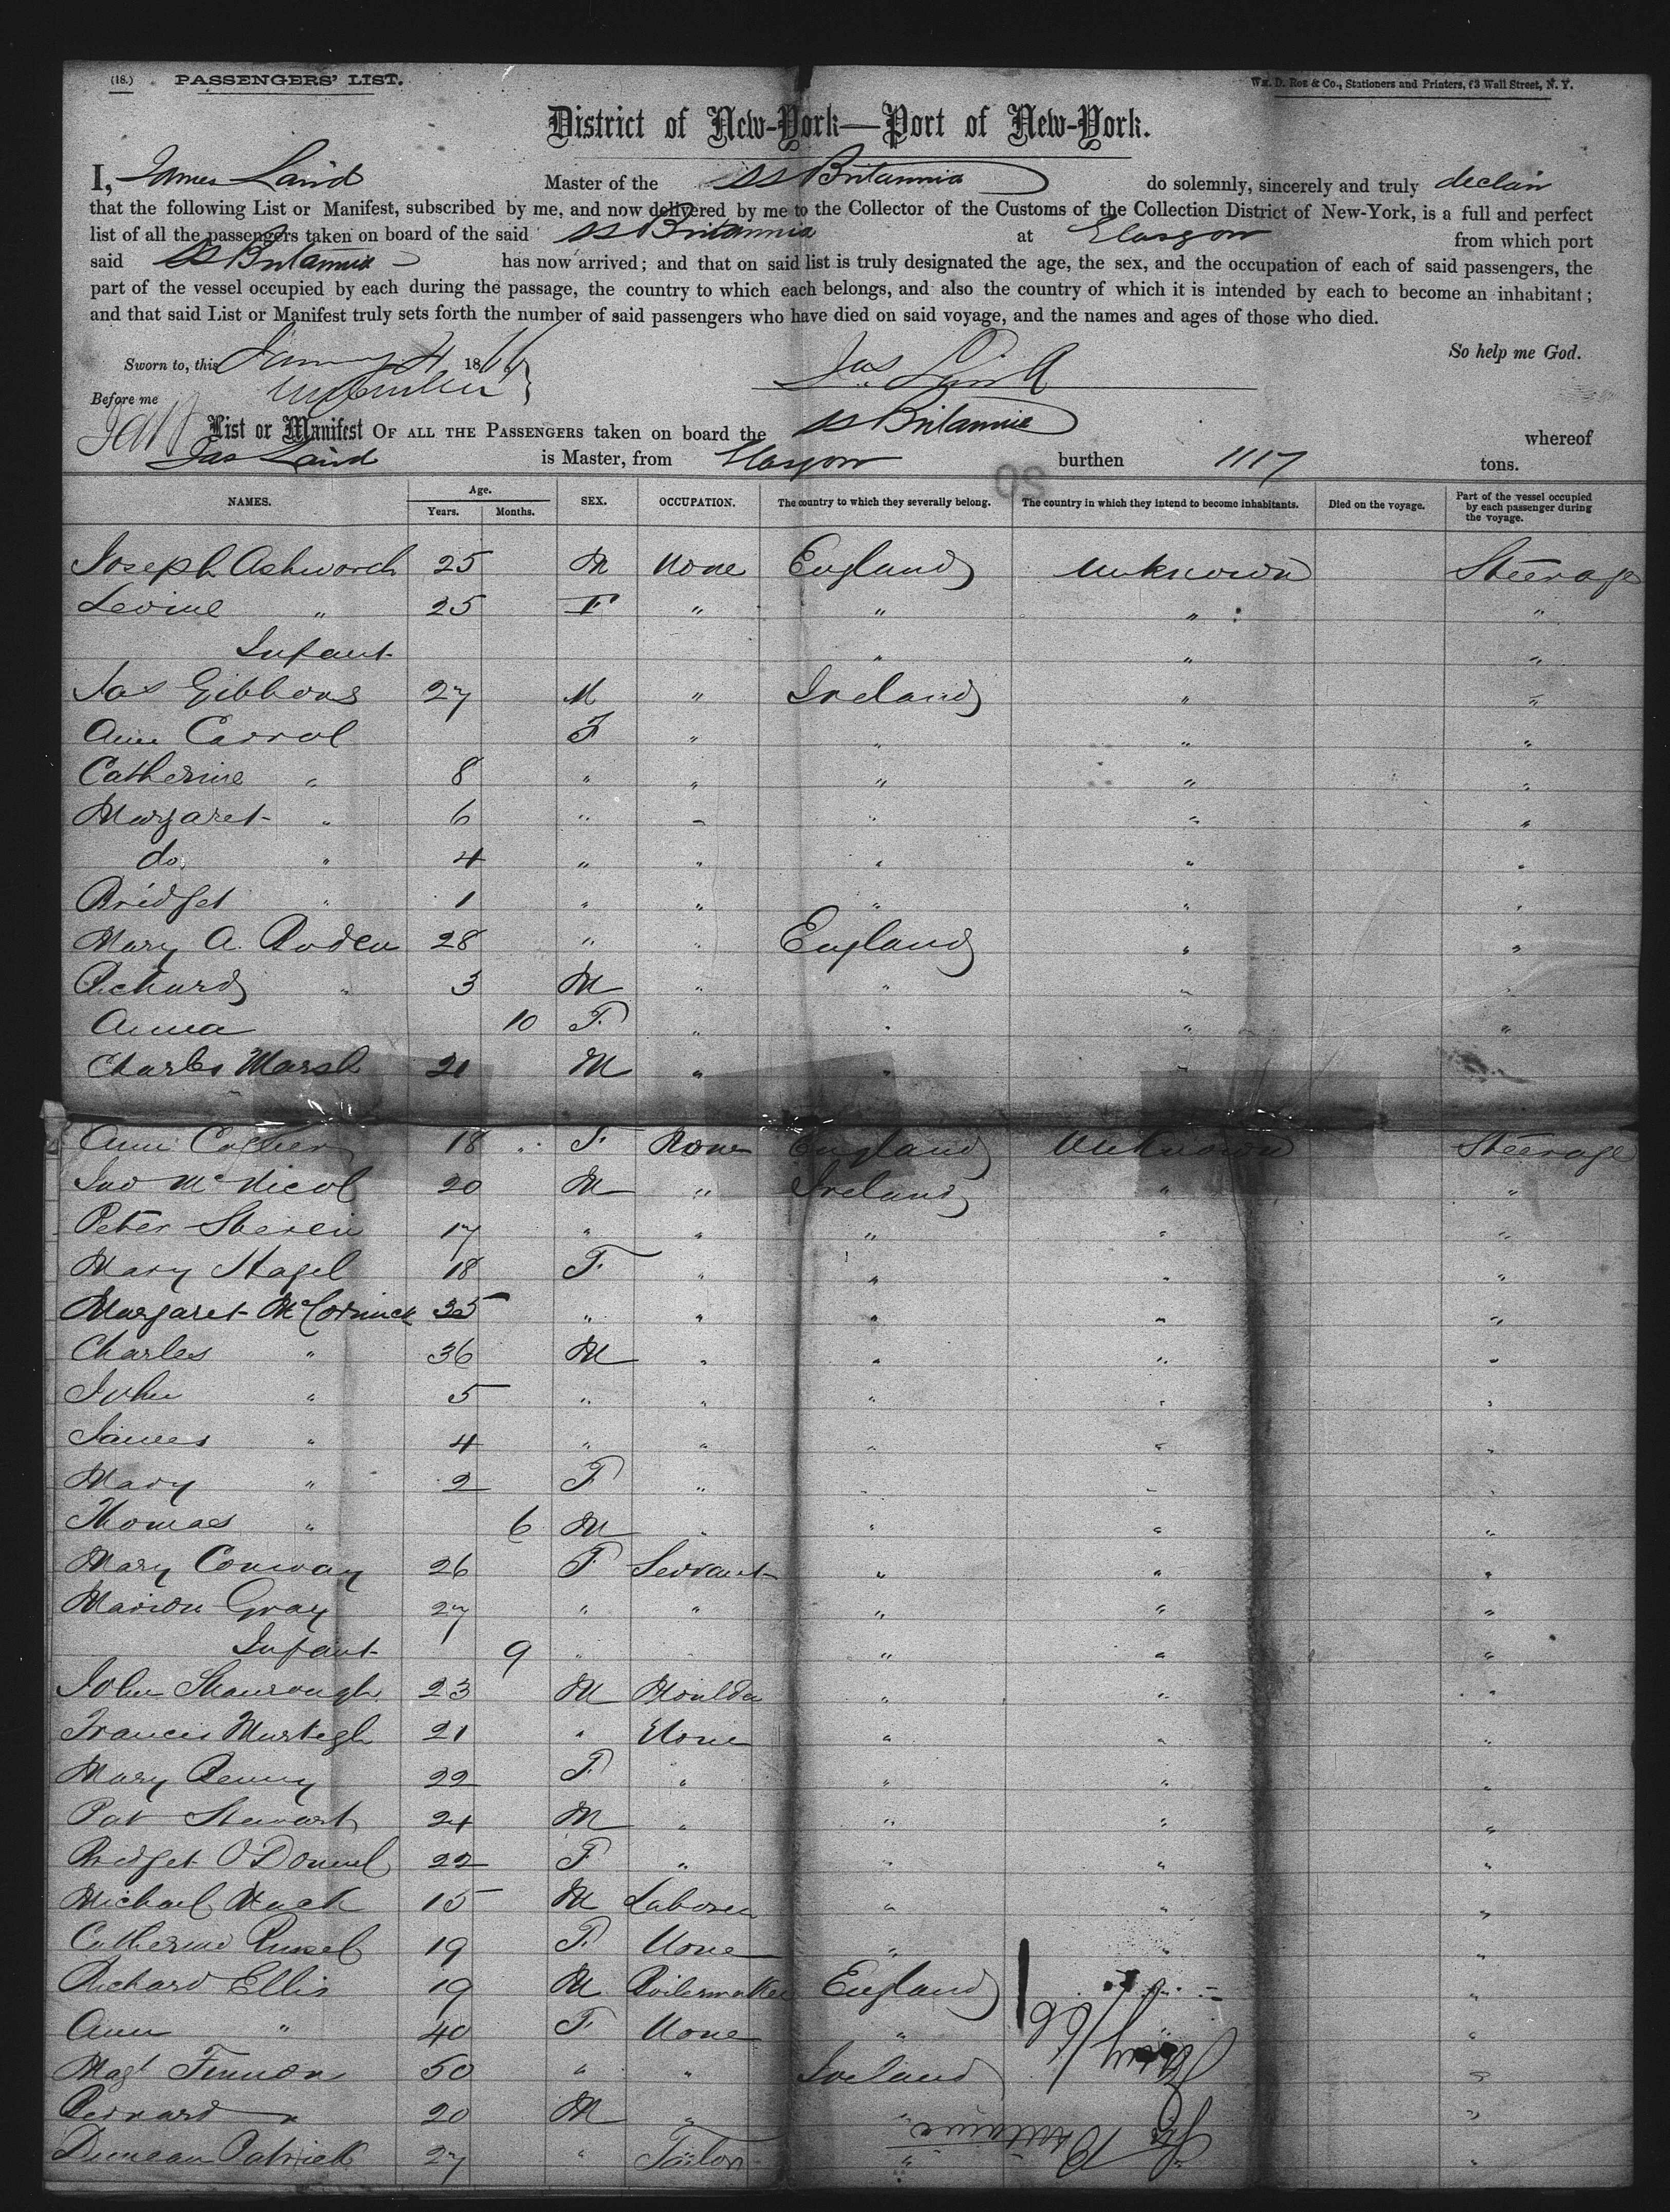 (18.) PASSENGERS' LIST. Wm. D. Roe & Co., Stationers and Printers, 63 Wall Street, N. Y.
District of New-York—Port of New-York.
I, James Laird Master of the SS Britannia do solemnly, sincerely and truly
that the following List or Manifest, subscribed by me, and now delivered by me to the Collector of the Customs of the Collection District of New-York, is a full and perfect
list of all the passengers taken on board of the said SS Britannia at Glasgow from which port
said SS Britannia has now arrived; and that on said list is truly designated the age, the sex, and the occupation of each of said passengers, the
part of the vessel occupied by each during the passage, the country to which each belongs, and also the country of which it is intended by each to become an inhabitant;
and that said List or Manifest truly sets forth the number of said passengers who have died on said voyage, and the names and ages of those who died.
So help me God.
Sworn to, this 4 1866 Jas Laird
Before me
List or Manifest OF ALL THE PASSENGERS taken on board the SS Britannia whereof
Jas Laird is Master, from Glasgow burthen 1117 tons.
NAMES. Age. Years. Months. SEX. OCCUPATION. The country to which they severally belong. The country in which they intend to become inhabitants. Died on the voyage. Part of the vessel occupied by each passenger during the voyage.
Joseph Ashworth 25 M None England Unknown Steerage
Levine " 25 F " " " "
Infant " " "
Jas Gibbons 27 M " Ireland " "
Ann Carrol F " " " "
Catherine " 8 " " " " "
Margaret " 6 " " " " "
do. " 4 " " " " "
Bridget " 1 " " " " "
Mary A. Roden 28 " " England " "
Richard " 3 M " " " "
Anna 10 F " " " "
Charles Marsh 21 M " " "
Ann 18 F None England Unknown Steerage
Jno McNicol 20 M " Ireland " "
Peter 17 " " " " "
Mary 18 F " " " "
Margaret McCormick 35 " " " " "
Charles " 36 M " " " "
John " 5 " " " " "
James " 4 " " " " "
Mary " 2 F " " " "
Thomas " 6 M " " " "
Mary Conway 26 F Servant " " "
Marion Gray 27 " " " " "
Infant 9 " " " "
John 23 M Moulder " " "
Francis 21 " None " " "
Mary 22 F " " " "
Pat Stewart 24 M " " " "
Bridget O'Donnel 22 F " " " "
Michael 15 M Laborer " " "
Catherine 19 F None " " "
Richard Ellis 19 M Boilermaker England " "
Ann " 40 F None " " "
Magt 50 " " Ireland "
Bernard " 20 M " " "
Duncan Patrick 27 " Tailor " "
SS Britannia